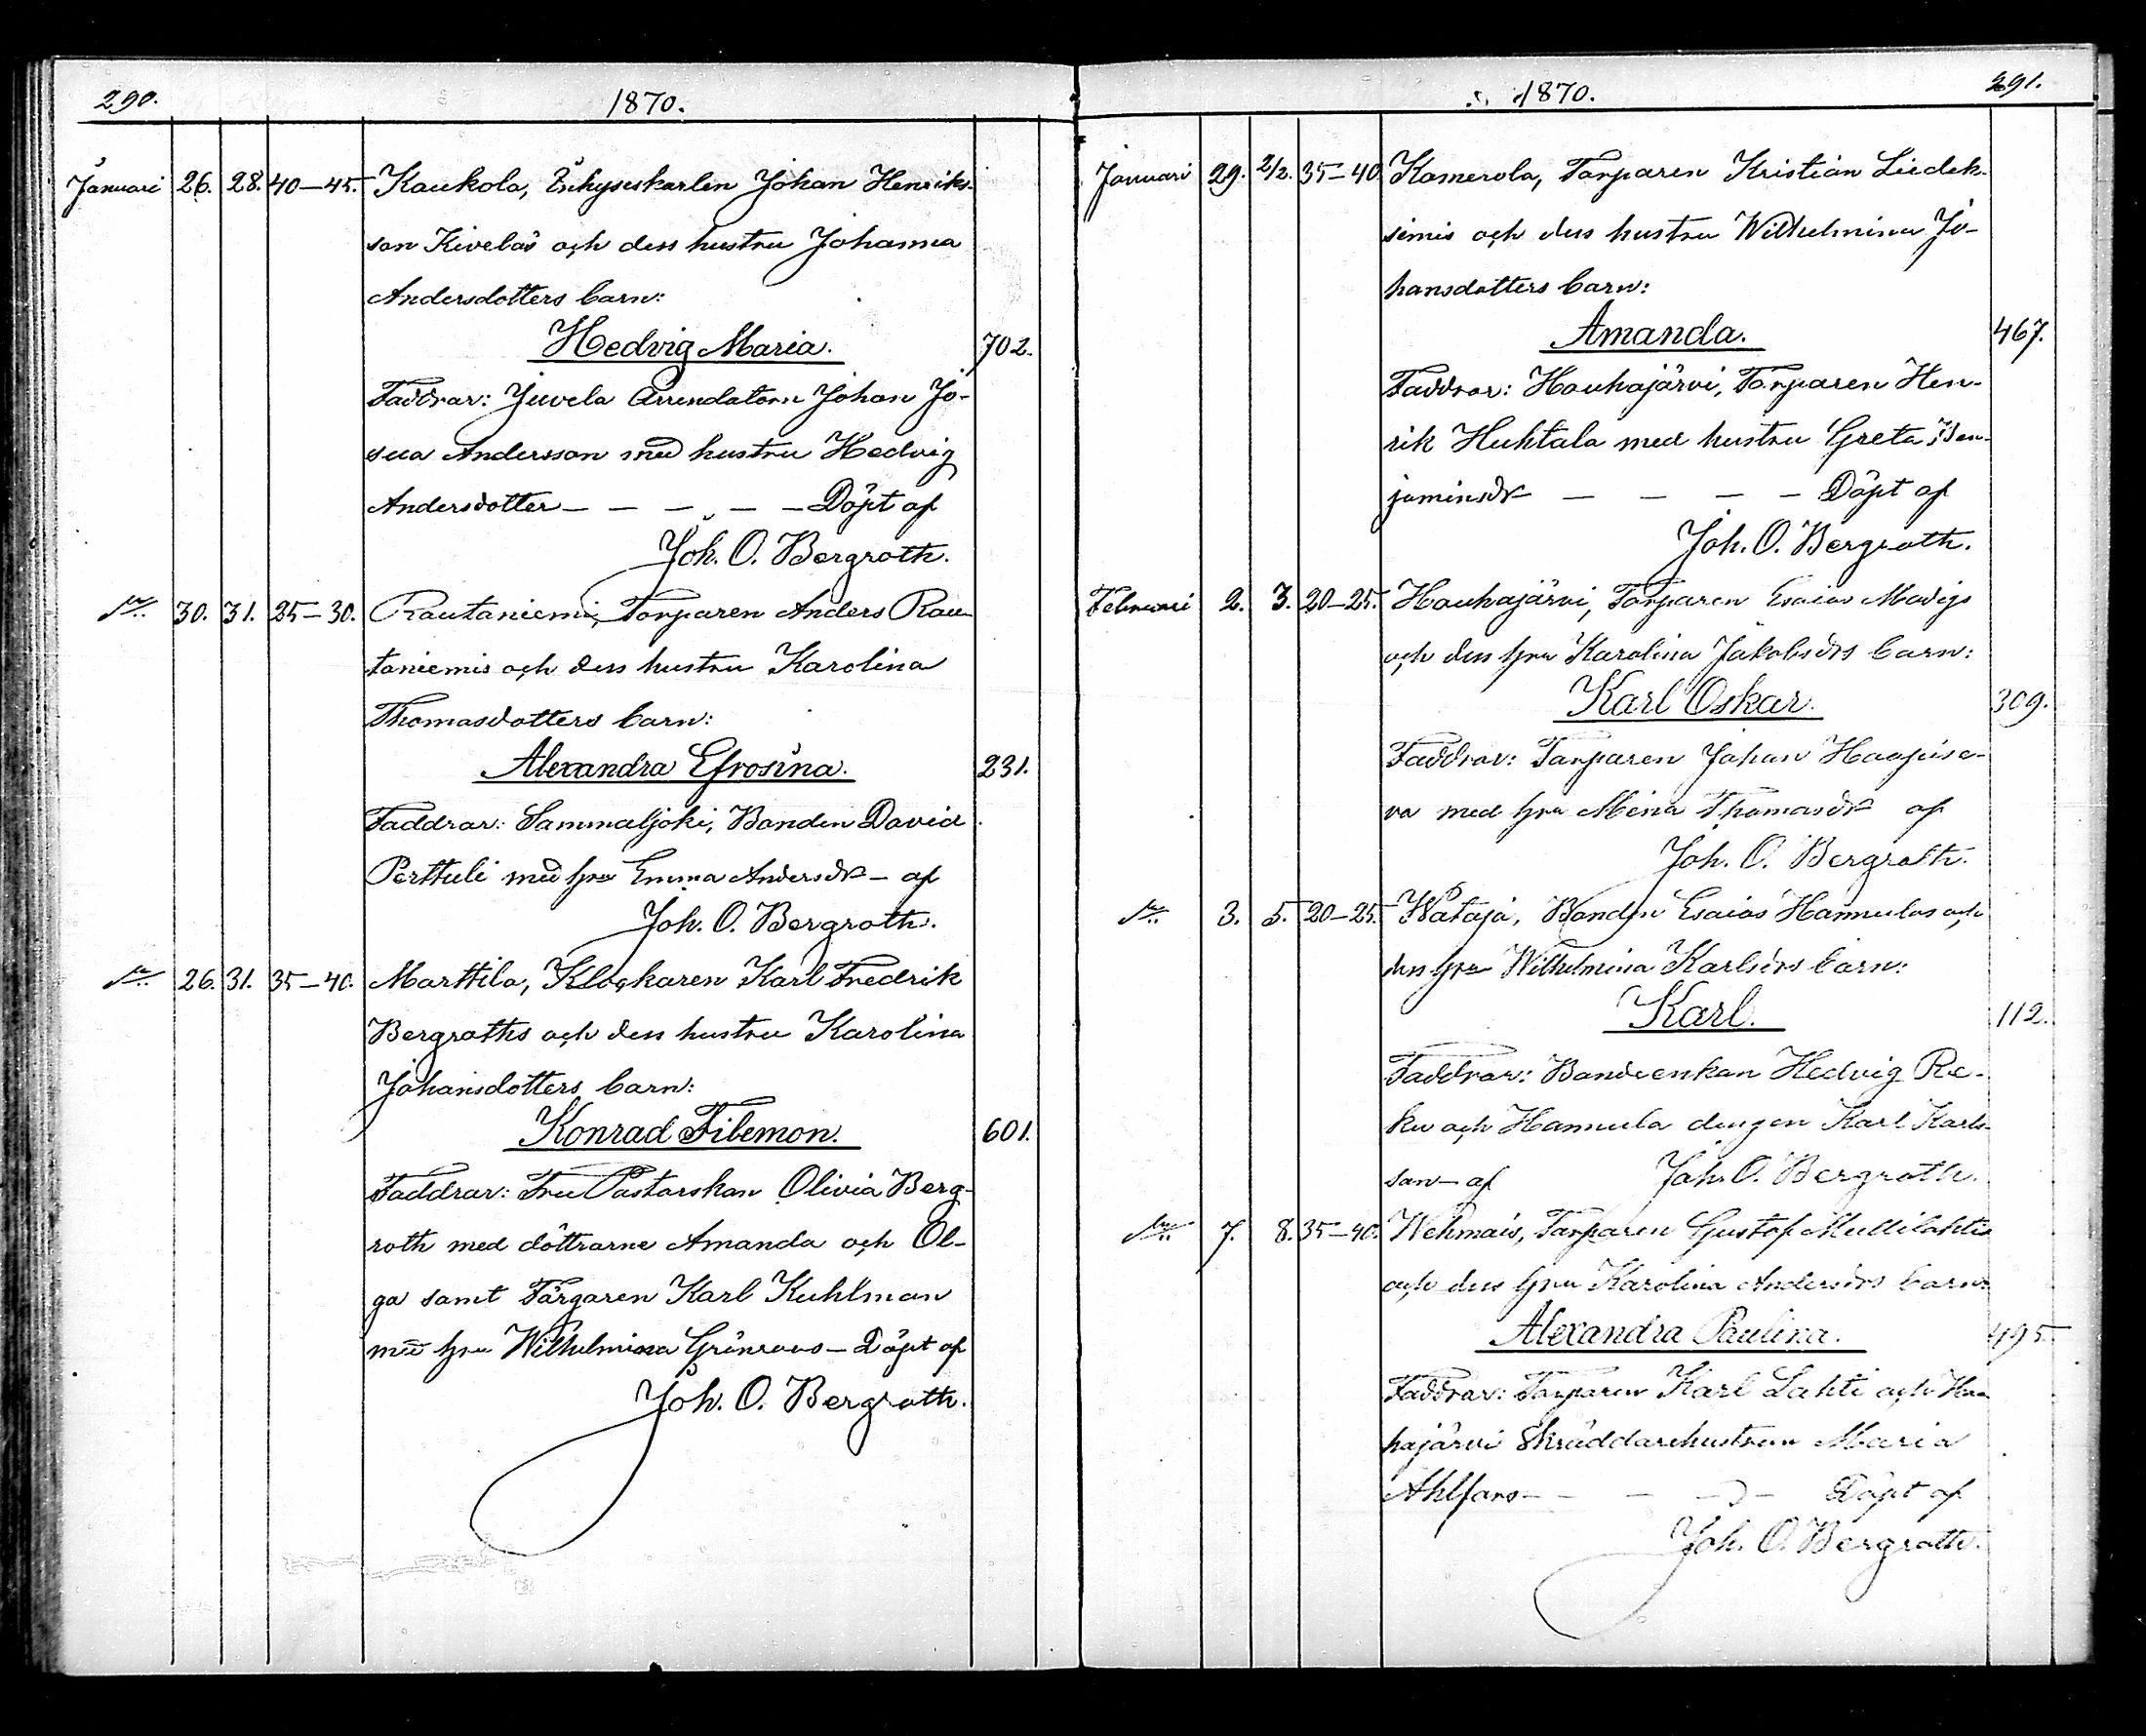 290.
1870.
Januari 26. 28. 40—45. Kaukola, Inhyseskarlen Johan Henriks-
son Kiveläs och dess hustru Johanna
Andersdotters barn:
Hedvig Maria. 702.
Faddrar: Juvela Arrendatorn Johan Jo-
sua Andersson med hustru Hedvig
Andersdotter — — — — — Döpt af
Joh. O. Bergroth.
30. 31. 25—30. Rautaniemi, Torparen Anders Rau-
taniemis och dess hustru Karolina
Thomasdotters barn:
Alexandra Efrosina. 231.
Faddrar: Sammaljoki, Bonden David
Perttuli med hru Emma Andersdr — af
Joh. O. Bergroth.
26. 31. 35—40. Marttila, Klockaren Karl Fredrik
Bergroths och dess hustru Karolina
Johansdotters barn:
Konrad Filemon. 601.
Faddrar: Fru Pastorskan Olivia Berg-
roth med döttrarne Amanda och Ol-
ga samt Färgaren Karl Kuhlman
med hru Wilhelmina Grönroos — Döpt af
Joh. O. Bergroth.
1870.
291.
Januari 29. 2/2. 35—40. Komerola, Torparen Kristian Liedek-
simis och dess hustru Wilhelmina Jo-
hansdotters barn:
Amanda. 467.
Faddrar: Houhajärvi, Torparen Hen-
rik Huhtala med hustru Greta Ben-
jaminsdr — — — — Döpt af
Joh. O. Bergroth.
Februari 2. 3. 20—25. Houhajärvi, Torparen Esaias Madigs
och dess hru Karolina Jakobsdrs barn:
Karl Oskar. 309.
Faddrar: Torparen Johan Haapise-
va med hru Mina Thomasdr af
Joh. O. Bergroth.
3. 5. 20—25. Kataja, Bonden Esaias Hannulas och
dess hru Wilhelmina Karlsdrs barn:
Karl. 112.
Faddrar: Bondeenkan Hedvig Re-
ku och Hannula drngen Karl Karls-
son — af Joh. O. Bergroth.
7. 8. 35—40. Wehmais, Torparen Gustaf Mullilahtis
och dess hru Karolina Andersdrs barn:
Alexandra Paulina. 495
Faddrar: Torparen Karl Lahti och Hou-
hajärvi Skräddarehustrun Maria
Ahlfors — — — — Döpt af
Joh. O. Bergroth.